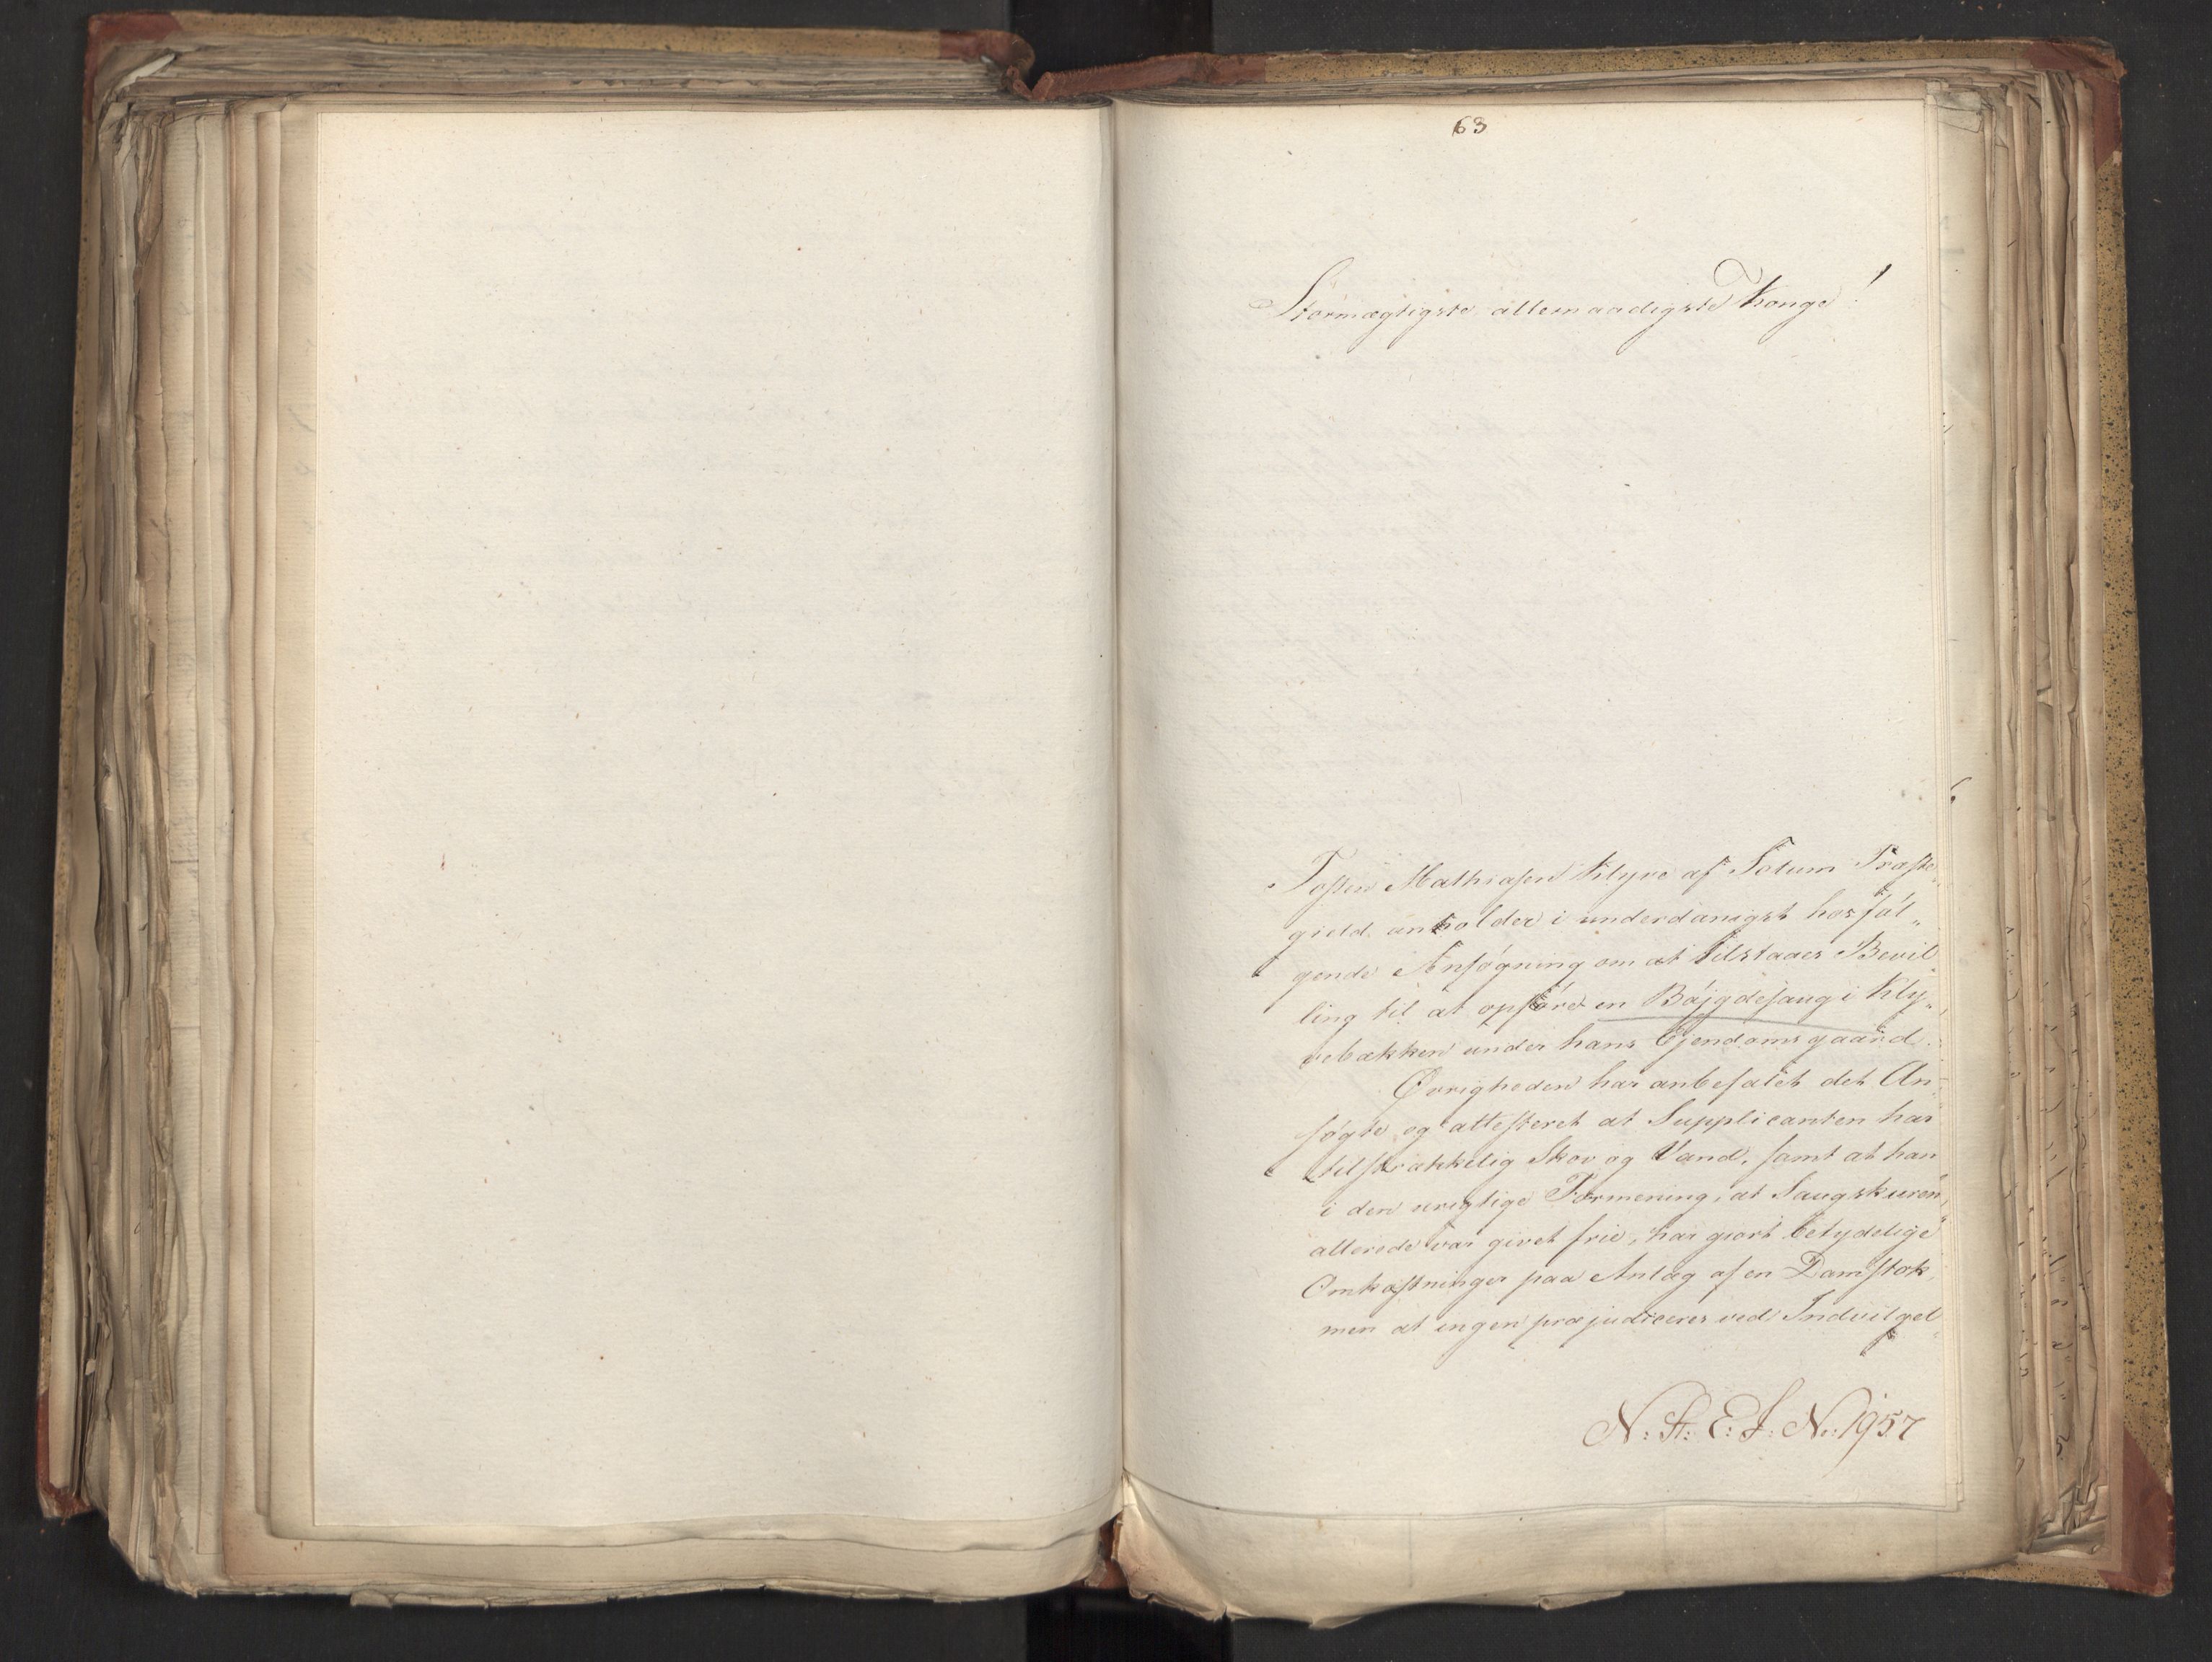 63
Stormægtigste allernaadigste Konge!
Tosten Mathiasen Klyve af Solum Præste„
gield anholder i underdanigst hosføl„
gende Ansøgning om at tilstaaes Bevil„
ling til at opføre en Bøjgdesaug i Kly„
vebækken under hans Ejendomsgaard.
Øvrigheden har anbefalet det An„
søgte og attesteret at Supplicanten har
tilstrækkelig Skov og Vand, samt at han
i den urigtige Formening, at Saugskuren
allerede var givet frie, har giort betydelige
Omkostninger paa Anlæg af en Damstok,
men at ingen præjudiceres ved Indvilgel„
N: St: E: J: No: 1957